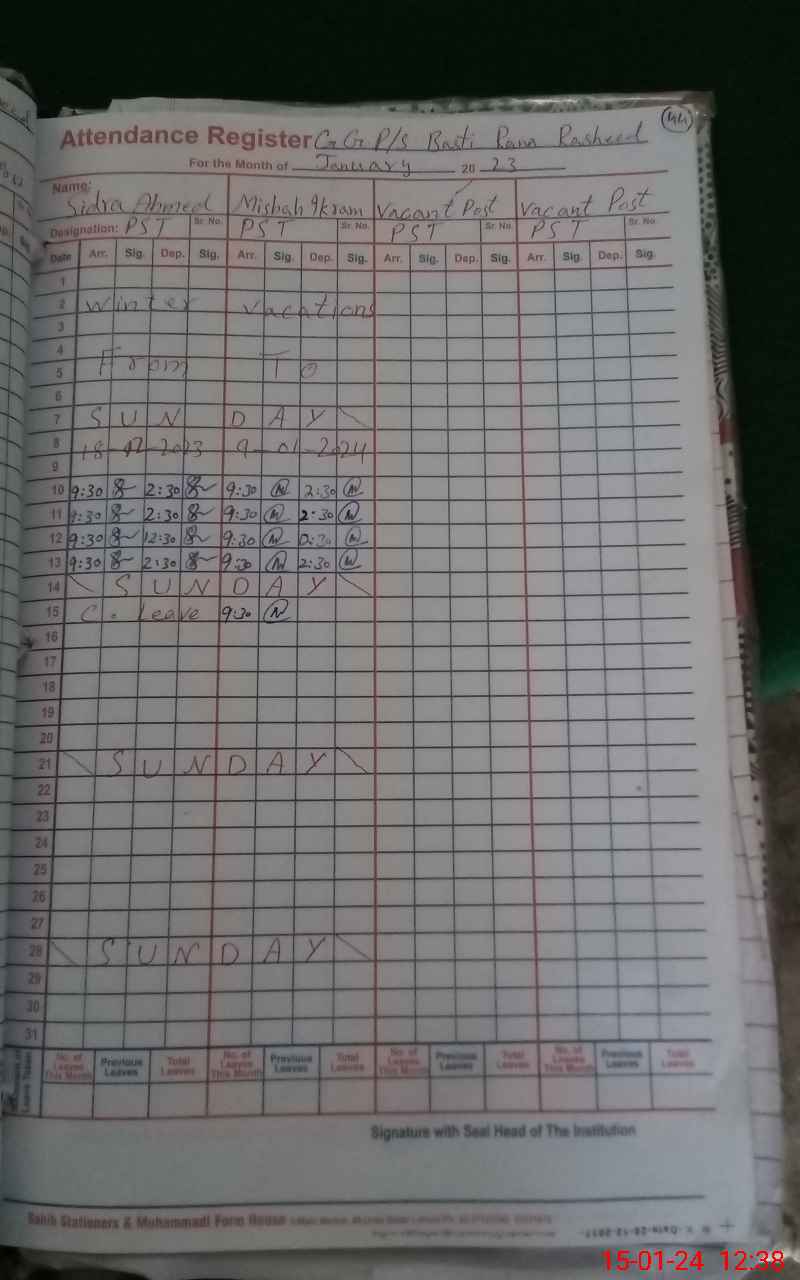 44
Attendance Register G G P/S Basti Rana Rasheed
For the Month of January 20 23
Name: Sidra Ahmed Misbah Ikram Vacant Post Vacant Post
Designation: PST Sr. No. PST Sr. No. PST Sr. No. PST Sr. No.
Date Arr. Sig. Dep. Sig. Arr. Sig. Dep. Sig. Arr. Sig. Dep. Sig. Arr. Sig. Dep. Sig.
1
2 Winter Vacations
3
4
5 From To
6
7 SUNDAY
8 18-12-2023 9-01-2024
9
10 9:30 2:30 9:30 2:30
11 9:30 2:30 9:30 2:30
12 9:30 12:30 9:30
13 9:30 2:30 9:30 2:30
14 SUNDAY
15 C. Leave 9:30
16
17
18
19
20
21 SUNDAY
22
23
24
25
26
27
28 SUNDAY
29
30
31
No. of Leaves This Month Previous Leaves Total Leaves No. of Leaves This Month Previous Leaves Total Leaves No. of Leaves This Month Previous Leaves Total Leaves No. of Leaves This Month Previous Leaves Total Leaves
Signature with Seal Head of The Institution
Sahib Stationers & Muhammadi Form House
15-01-24 12:38